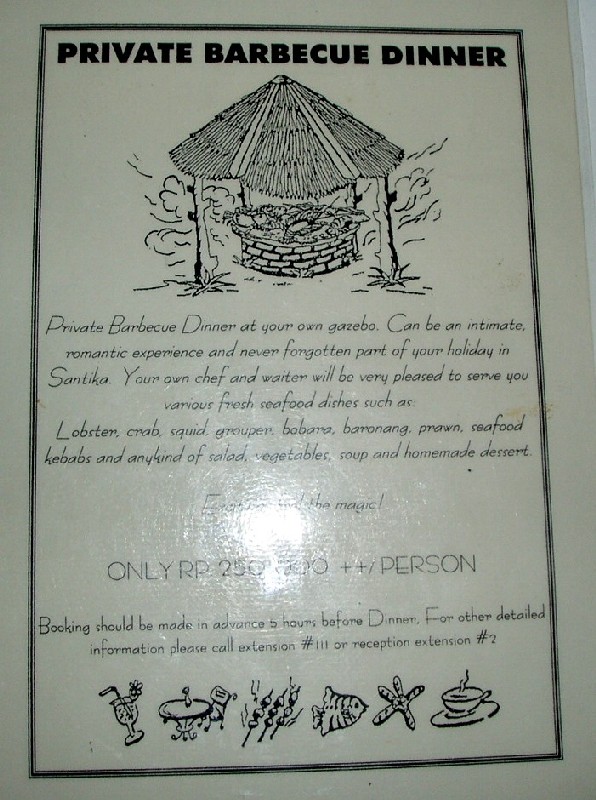 PRIVATE BARBECUE DINNER
Private Barbecue Dinner at your own gazebo. Can be an intimate,
romantic experience and never forgotten part of your holiday in
Santika. Your own chef and waiter will be very pleased to serve you
various fresh seafood dishes such as:
Lobster, crab, squid, grouper, bobara, baronang, prawn, seafood
kebabs and anykind of salad, vegetables, soup and homemade dessert.
the magic!
ONLY RP. 250 ++/ PERSON
Booking should be made in advance 5 hours before Dinner. For other detailed
information please call extension #111 or reception extension #2